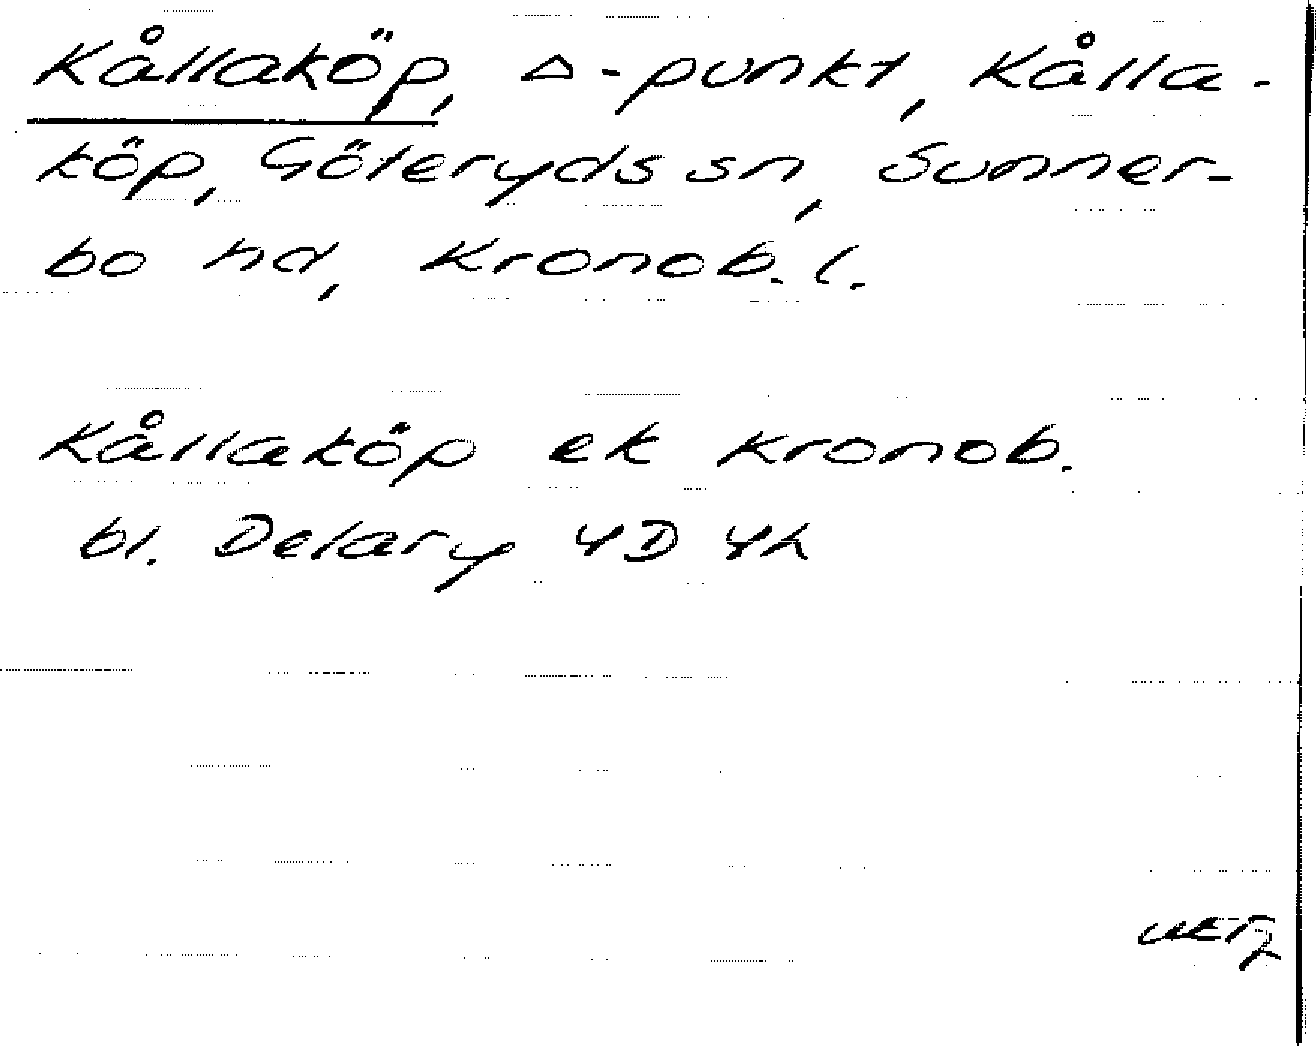 Kållaköp, △-punkt, Kålla-
köp, Göteryds sn, Sunner-
bo hd, Kronob. l.
Kållaköp ek Kronob.
bl. Delary 4D 4h